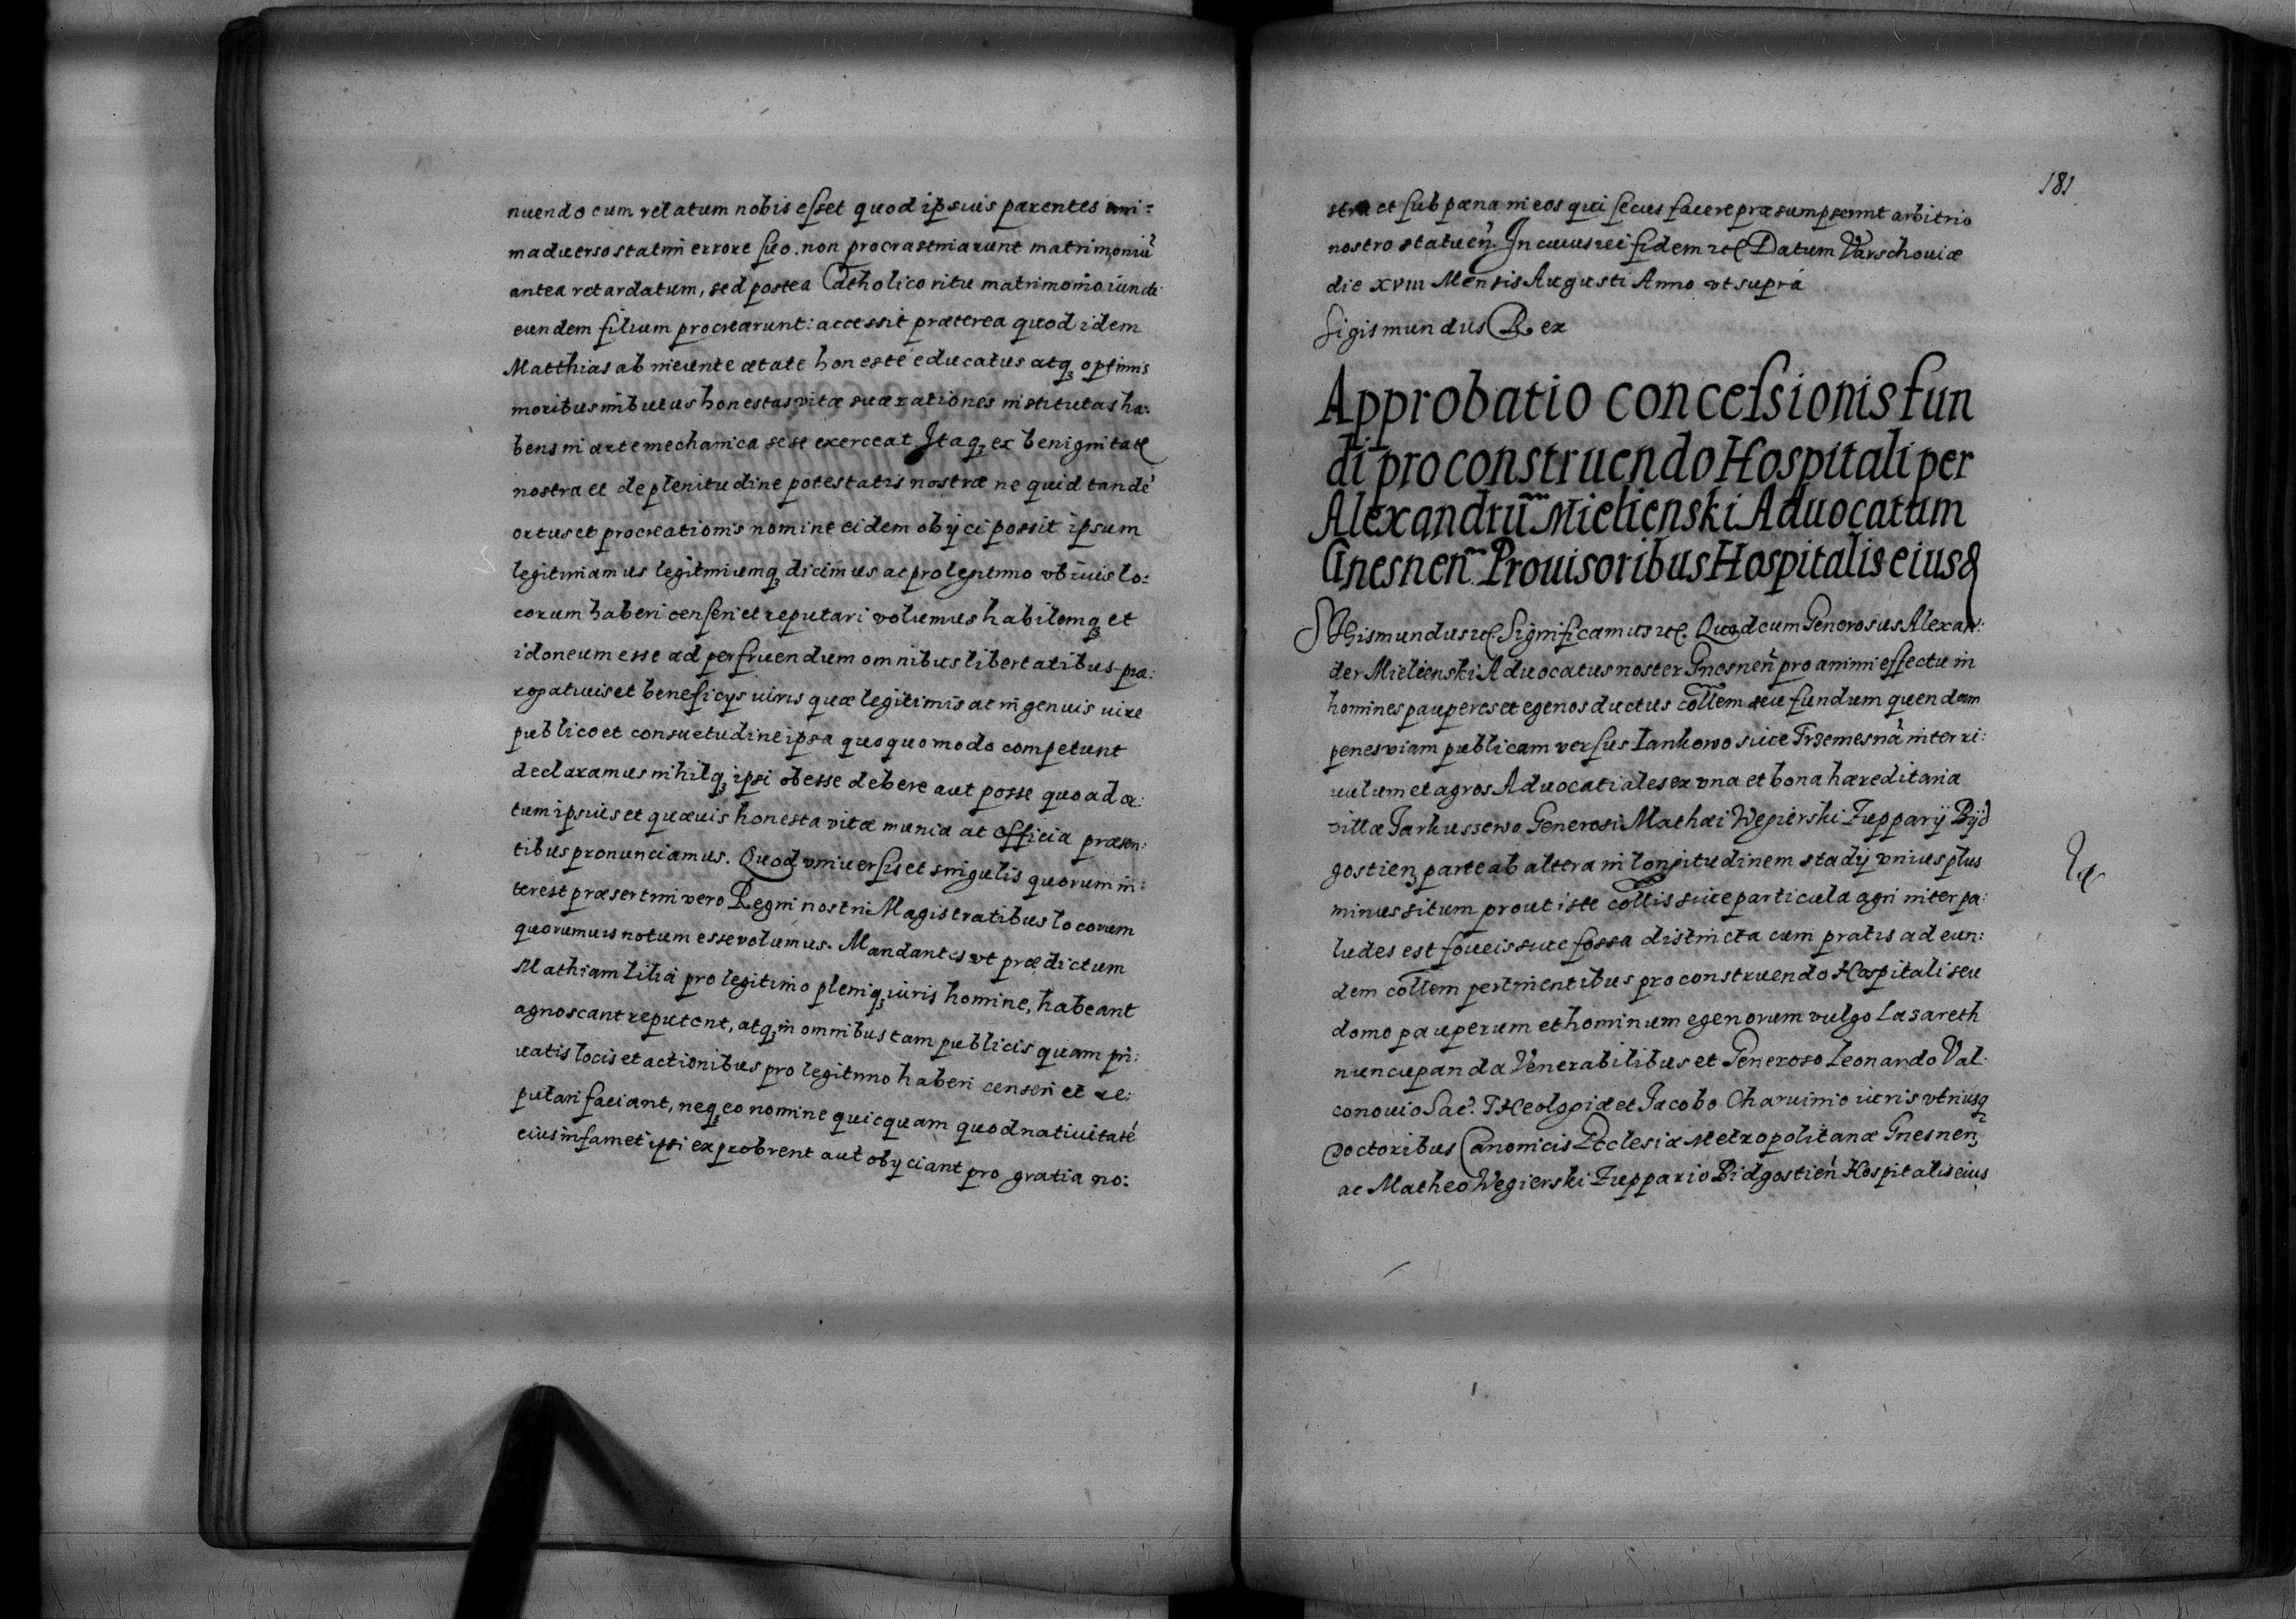 nuendo cum relatum nobis esset quod ipsius parentes ani:
maduerso statim errore suo. non procrastinarunt matrimoniũ
antea retardatum, sed postea Catholico ritu matrimonio iuncti
eundem filium procrearunt: accessit præterea quod idem
Matthias ab ineunte ætate honestè educatus atq₃ optimis
moribus imbutus honestas vitæ suæ rationes institutas ha:
bens in arte mechanica sese exerceat Itaq₃ ex benignitate
nostra et de plenitudine potestatis nostræ ne quid tandẽ
ortus et procreationis nomine eidem obijci possit ipsum
legitimamus legitimumq₃ dicimus ac pro legitimo vbiuis lo:
corum haberi censeri et reputari volumus habilemq₃ et
idoneum esse ad perfruendum omnibus libertatibus præ:
rogatiuis et beneficijs iuris quæ legitimis ac ingenuis iure
publico et consuetudine ipsa quoquomodo competunt
declaramus nihilq₃ ipsi obesse debere aut posse quoad or:
tum ipsius et quæuis honesta vitæ munia ac officia præsen:
tibus pronunciamus. Quod vniuersis et singulis quorum in:
terest præsertim vero Regni nostri Magistratibus locorum
quorumuis notum esse volumus. Mandantes vt prædictum
Mathiam Lilia pro legitimo pleniq₃ iuris homine, habeant
agnoscant reputent, atq₃ in omnibus tam publicis quam pri:
uatis locis et actionibus pro legitimo haberi censeri et re:
putari faciant, neq₃ eo nomine quicquam quod natiuitatẽ
eius infamet ipsi exprobrent aut obijciant pro gratia no:
181
stra et sub pœna in eos qui secus facere præsumpserint arbitrio
nostro statueñ. In cuius rei fidem etc Datum Varschouiæ
die XVIII Mensis Augusti Anno vt suprà
Sigismundus Rex
Approbatio concessionis fun
di pro construendo Hospitali per
Alexandrũ Mielienski Aduocatum
Gnesnen. Prouisoribus Hospitalis eiusd
Sigismundus etc. Significamus etc. Quod cum Generosus Alexan:
der Mielienski Aduocatus noster Gnesneñ pro animi effectu in
homines pauperes et egenos ductus collem seu fundum quendam
penes viam publicam versus Iankowo siue Trzemesnã inter ri:
uulum et agros Aduocatiales ex vna et bona hæreditaria
villæ Jarkuszewo Generosi Mathæi Wegierski Zupparij Bijd
gostien₃ parte ab altera in longitudinem stadij vnius plus
minus situm prout iste collis siue particula agri inter pa:
ludes est foueis siue fossa distincta cum pratis ad eun:
dem collem pertinentibus pro construendo Hospitali seu
domo pauperum et hominum egenorum vulgo Lazareth
nuncupanda Venerabilibus et Generoso Leonardo Val:
conouio Sac. THeologiæ et Jacobo Charuinio iuris vtriusq₃
Doctoribus Canonicis Ecclesiæ Metropolitanæ Gnesnen₃
ac Matheo Wegierski Zuppario Bidgostieñ Hospitalis eius